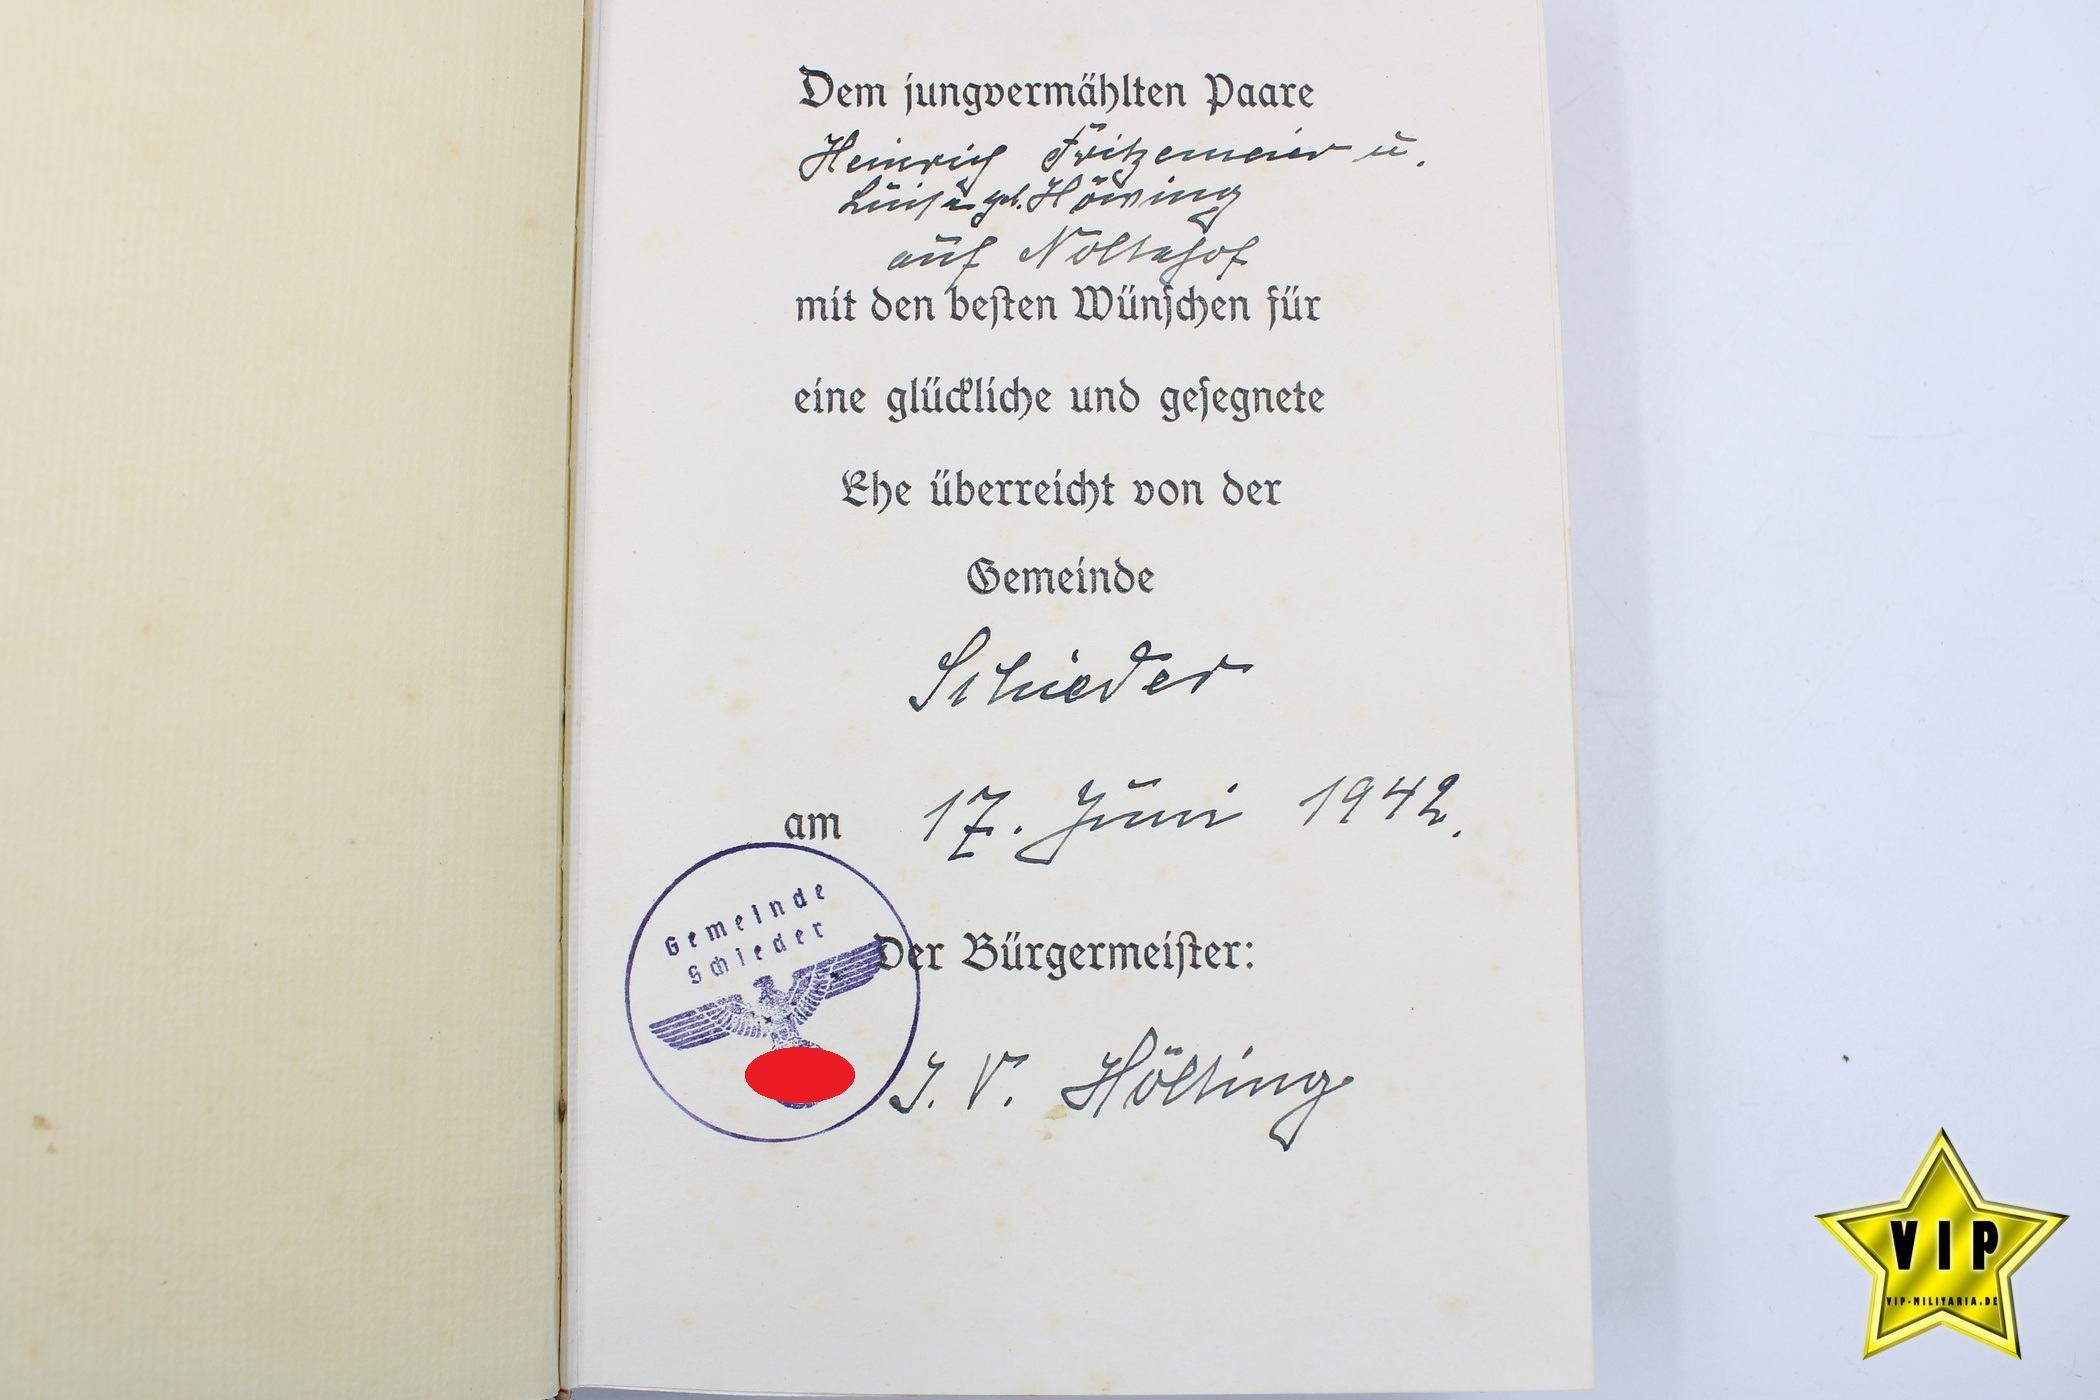 Dem jungvermählten Paare
Heinrich Fritzemeier u.
Luise geb. Höwing
auf Noltehof
mit den besten Wünschen für
eine glückliche und gesegnete
Ehe überreicht von der
Gemeinde
Schieder
am 17. Juni 1942.
Gemeinde
Schieder
Der Bürgermeister:
J. V. Hölting
VIP
VIP-MILITARIA.DE